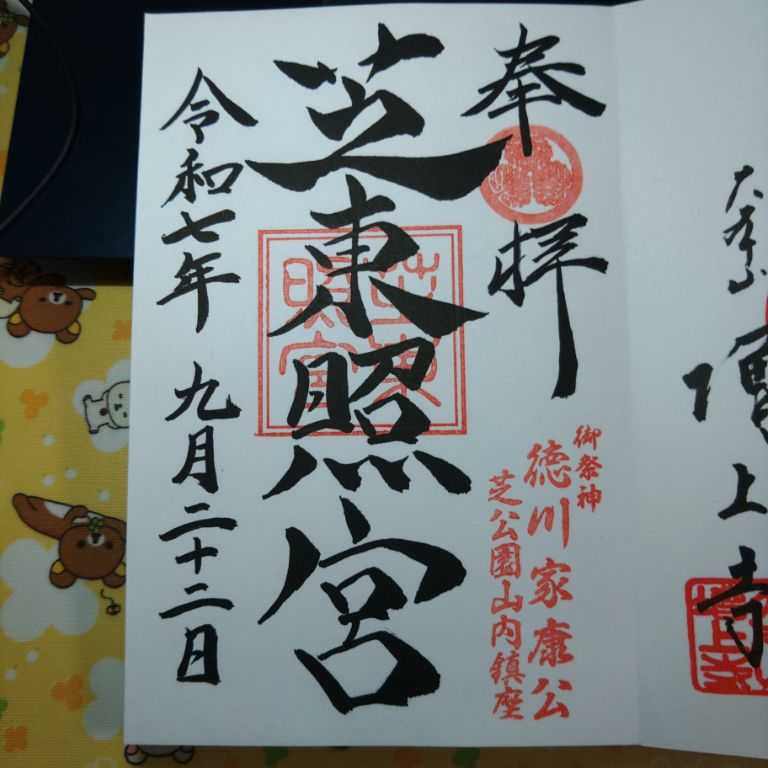 大本山
増上寺
奉拝
御祭神
徳川家康公
芝公園山内鎮座
芝東照宮
芝東照宮
令和七年 九月二十二日